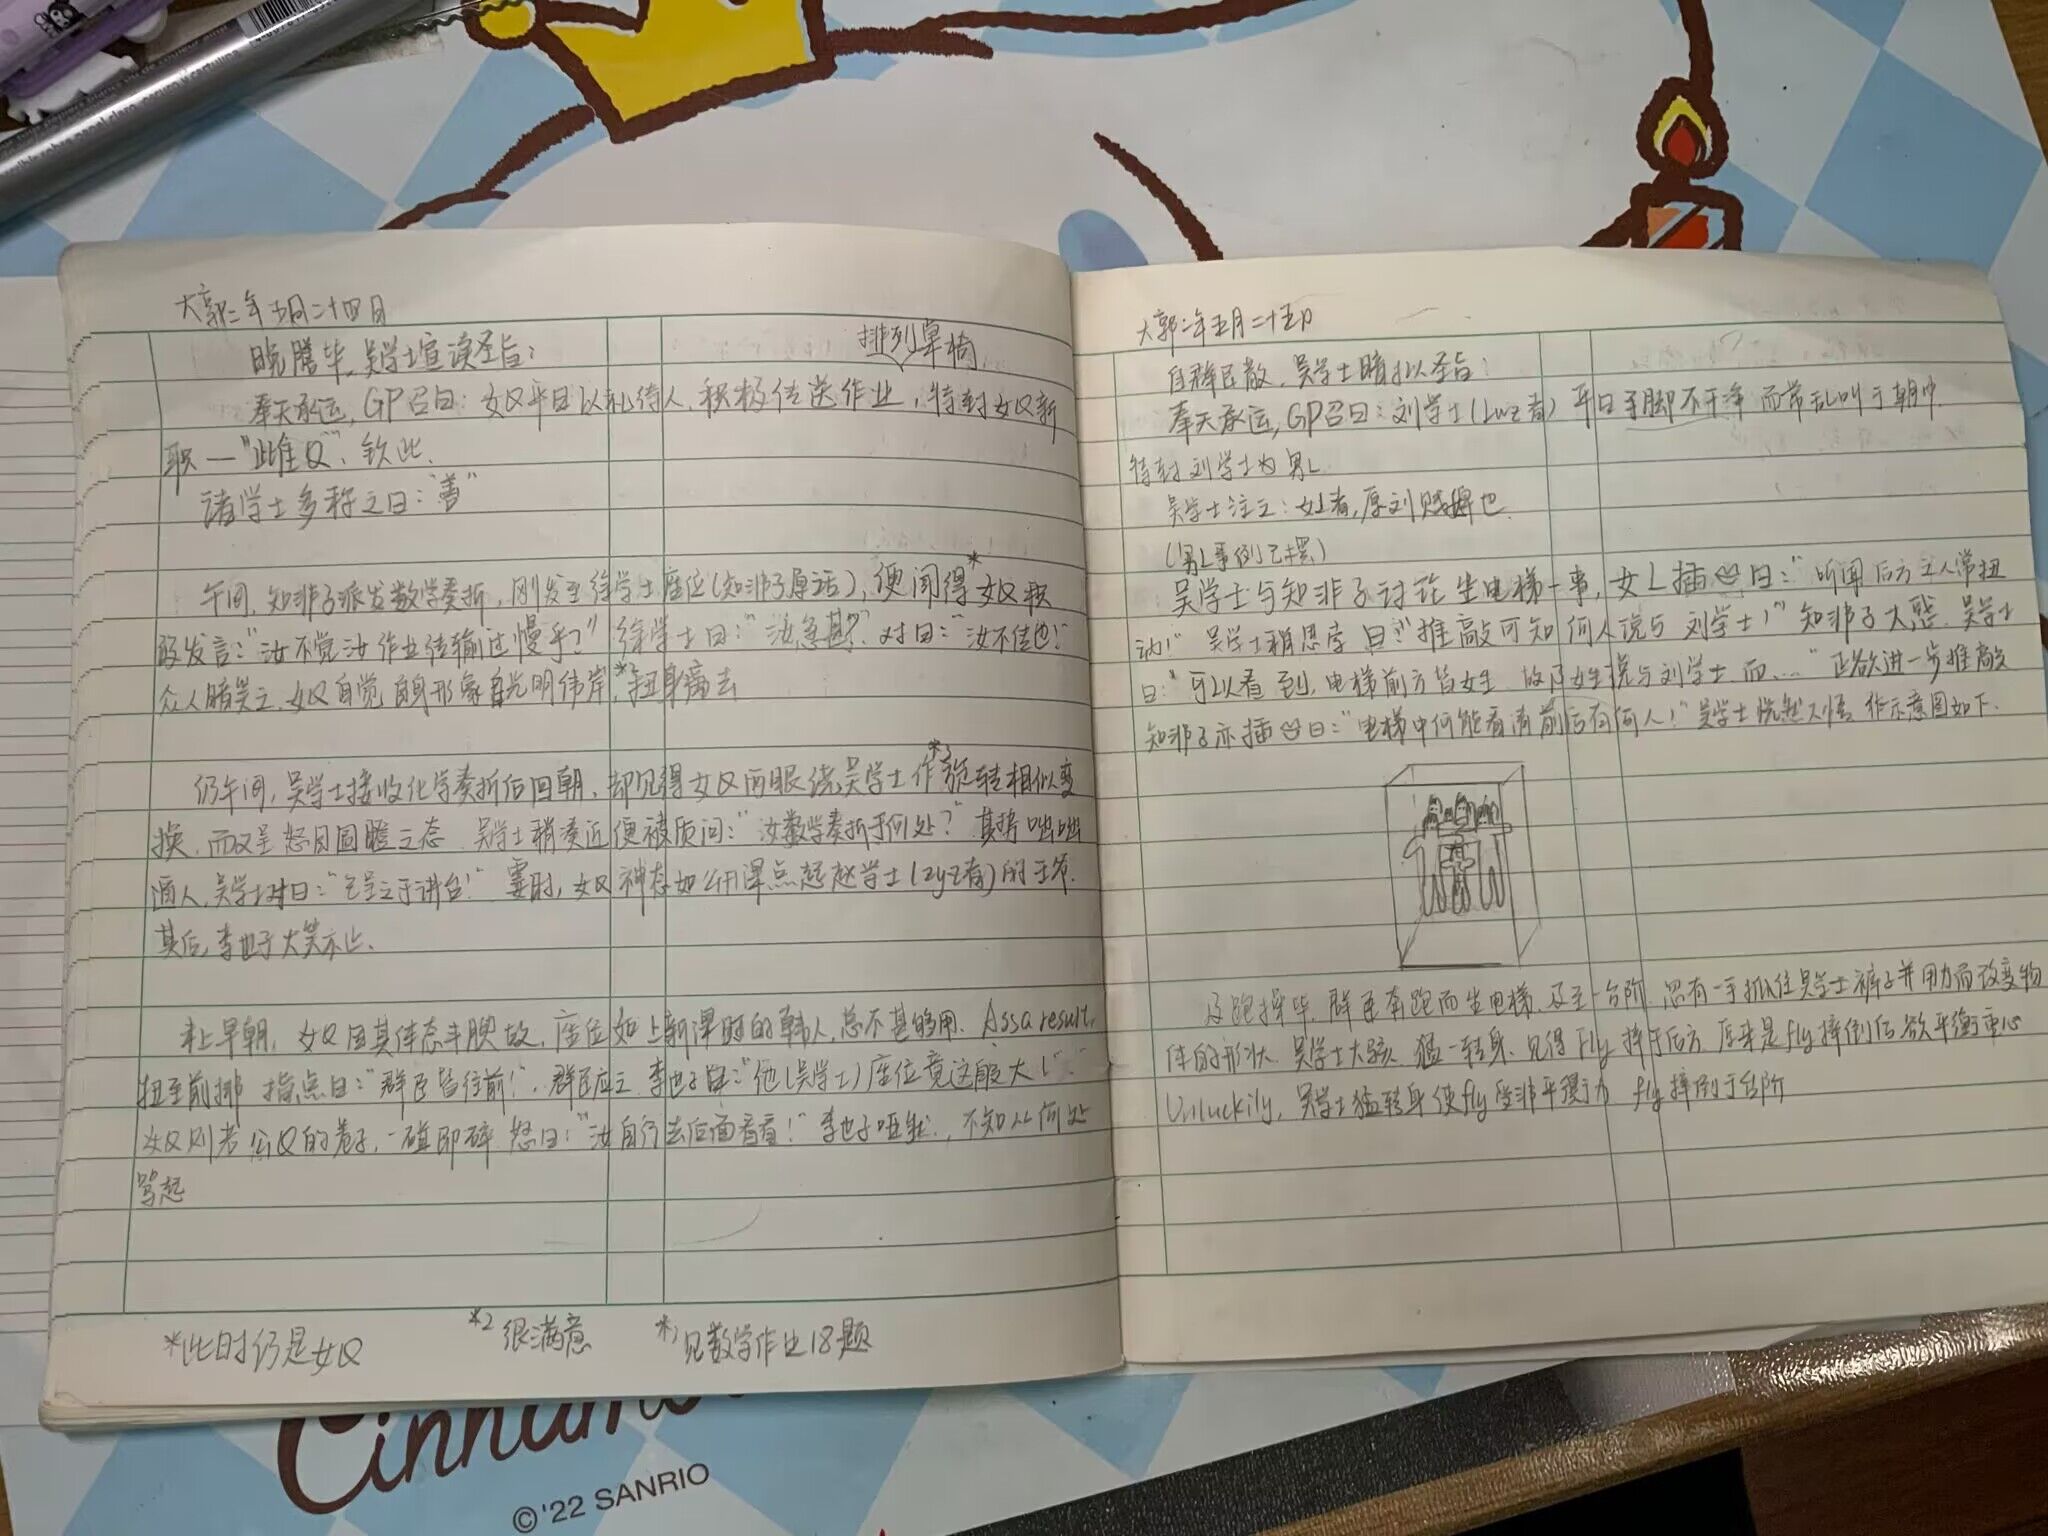 大郭二年五月二十四日
晚膳毕，吴学士宣读圣旨：
排列桌椅
奉天承运，GP召曰：女Q平日以礼待人，积极传送作业，特封女Q新
职—"雌Q"，钦此.
诸学士多称之曰："善"
午间，知非子派发数学奏折，刚发至徐学士座位(知非子原话)，便闻得*女Q积
极发言："汝不觉汝作业传输过慢乎？"徐学士曰："汝急甚？"对曰："汝不佳也！"
众人暗笑之，女Q自觉自身形象光明伟岸*2，扭身离去
仍午间，吴学士接收化学奏折后回朝，却见得女Q两眼绕吴学士作*3旋转相似变
换，而又呈怒目圆瞪之态，吴学士稍凑近便被质问："汝数学奏折于何处？"其势咄咄
逼人，吴学士对曰："已呈之于讲台！"霎时，女Q神态如公开课点起赵学士(zyz者)的王爷.
其后，李也子大笑不止.
未上早朝，女Q因其体态丰腴故，座位如上新课时的韩人，总不甚够用. As a result,
扭至前排 指点曰："群臣皆往前！"，群臣应之，李也子曰："他(吴学士)座位竟这般大！"
女Q则若公Q的卷子，一碰即碎 怒曰："汝自行去后面看看！"李也子哑然，不知从何处
骂起
*此时仍是女Q
*2 很满意
*3 见数学作业18题
大郭二年五月二十五日
自群臣散，吴学士暗拟圣旨：
奉天承运，GP召曰：刘学士(Lwz者)平日手脚不干净 而常乱叫于朝中.
特封刘学士为男L
吴学士注之：女L者，原刘贱婢也.
(男L事例已摆)
吴学士与知非子讨论坐电梯一事，女L插曰："听闻后方之人常扭
动！"吴学士稍思索 曰："推敲可知何人说与刘学士！"知非子大惑，吴学士
曰："可以看到，电梯前方皆女生，故女生说与刘学士，而……"正欲进一步推敲
知非子亦插曰："电梯中何能看清前后有何人！"吴学士恍然大悟，作示意图如下.
及跑操毕，群臣奔跑而坐电梯，及至一台阶，忽有一手抓住吴学士裤子并用力而改变物
体的形状，吴学士大骇，猛一转身，见得fly摔于后方，原来是fly摔倒后欲平衡重心
Unluckily, 吴学士猛转身使fly受非平衡力 fly摔倒于台阶
Cinnamo
©'22 SANRIO